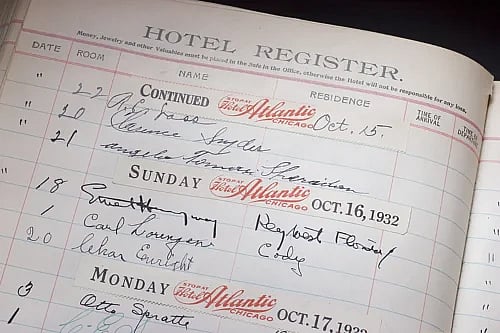 HOTEL REGISTER.
Money, Jewelry and other Valuables must be placed in the Safe in the Office, otherwise the Hotel will not be responsible for any loss.
DATE ROOM NAME RESIDENCE TIME OF ARRIVAL TIME OF DEPARTURE
CONTINUED STOP AT Hotel Atlantic CHICAGO Oct. 15
" 22
" 20 Clarence Snyder
21 Sheridan
SUNDAY STOP AT Hotel Atlantic CHICAGO OCT. 16, 1932
" 18 Ernest Hemingway Key West Florida
1 Carl Cody
20 Enright
MONDAY STOP AT Hotel Atlantic CHICAGO OCT. 17, 1932
3 Otto Spratte
1